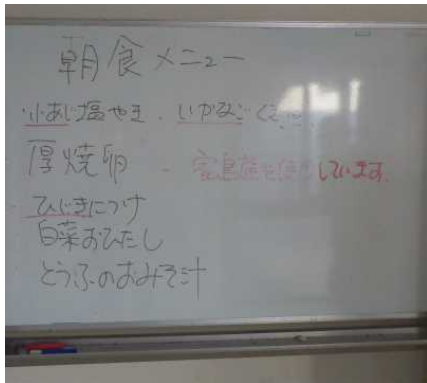 朝食メニュー
小あじ塩やき、いかなごくぎ
厚焼卵
しています
ひじきにつけ
白菜おひたし
とうふのおみそ汁